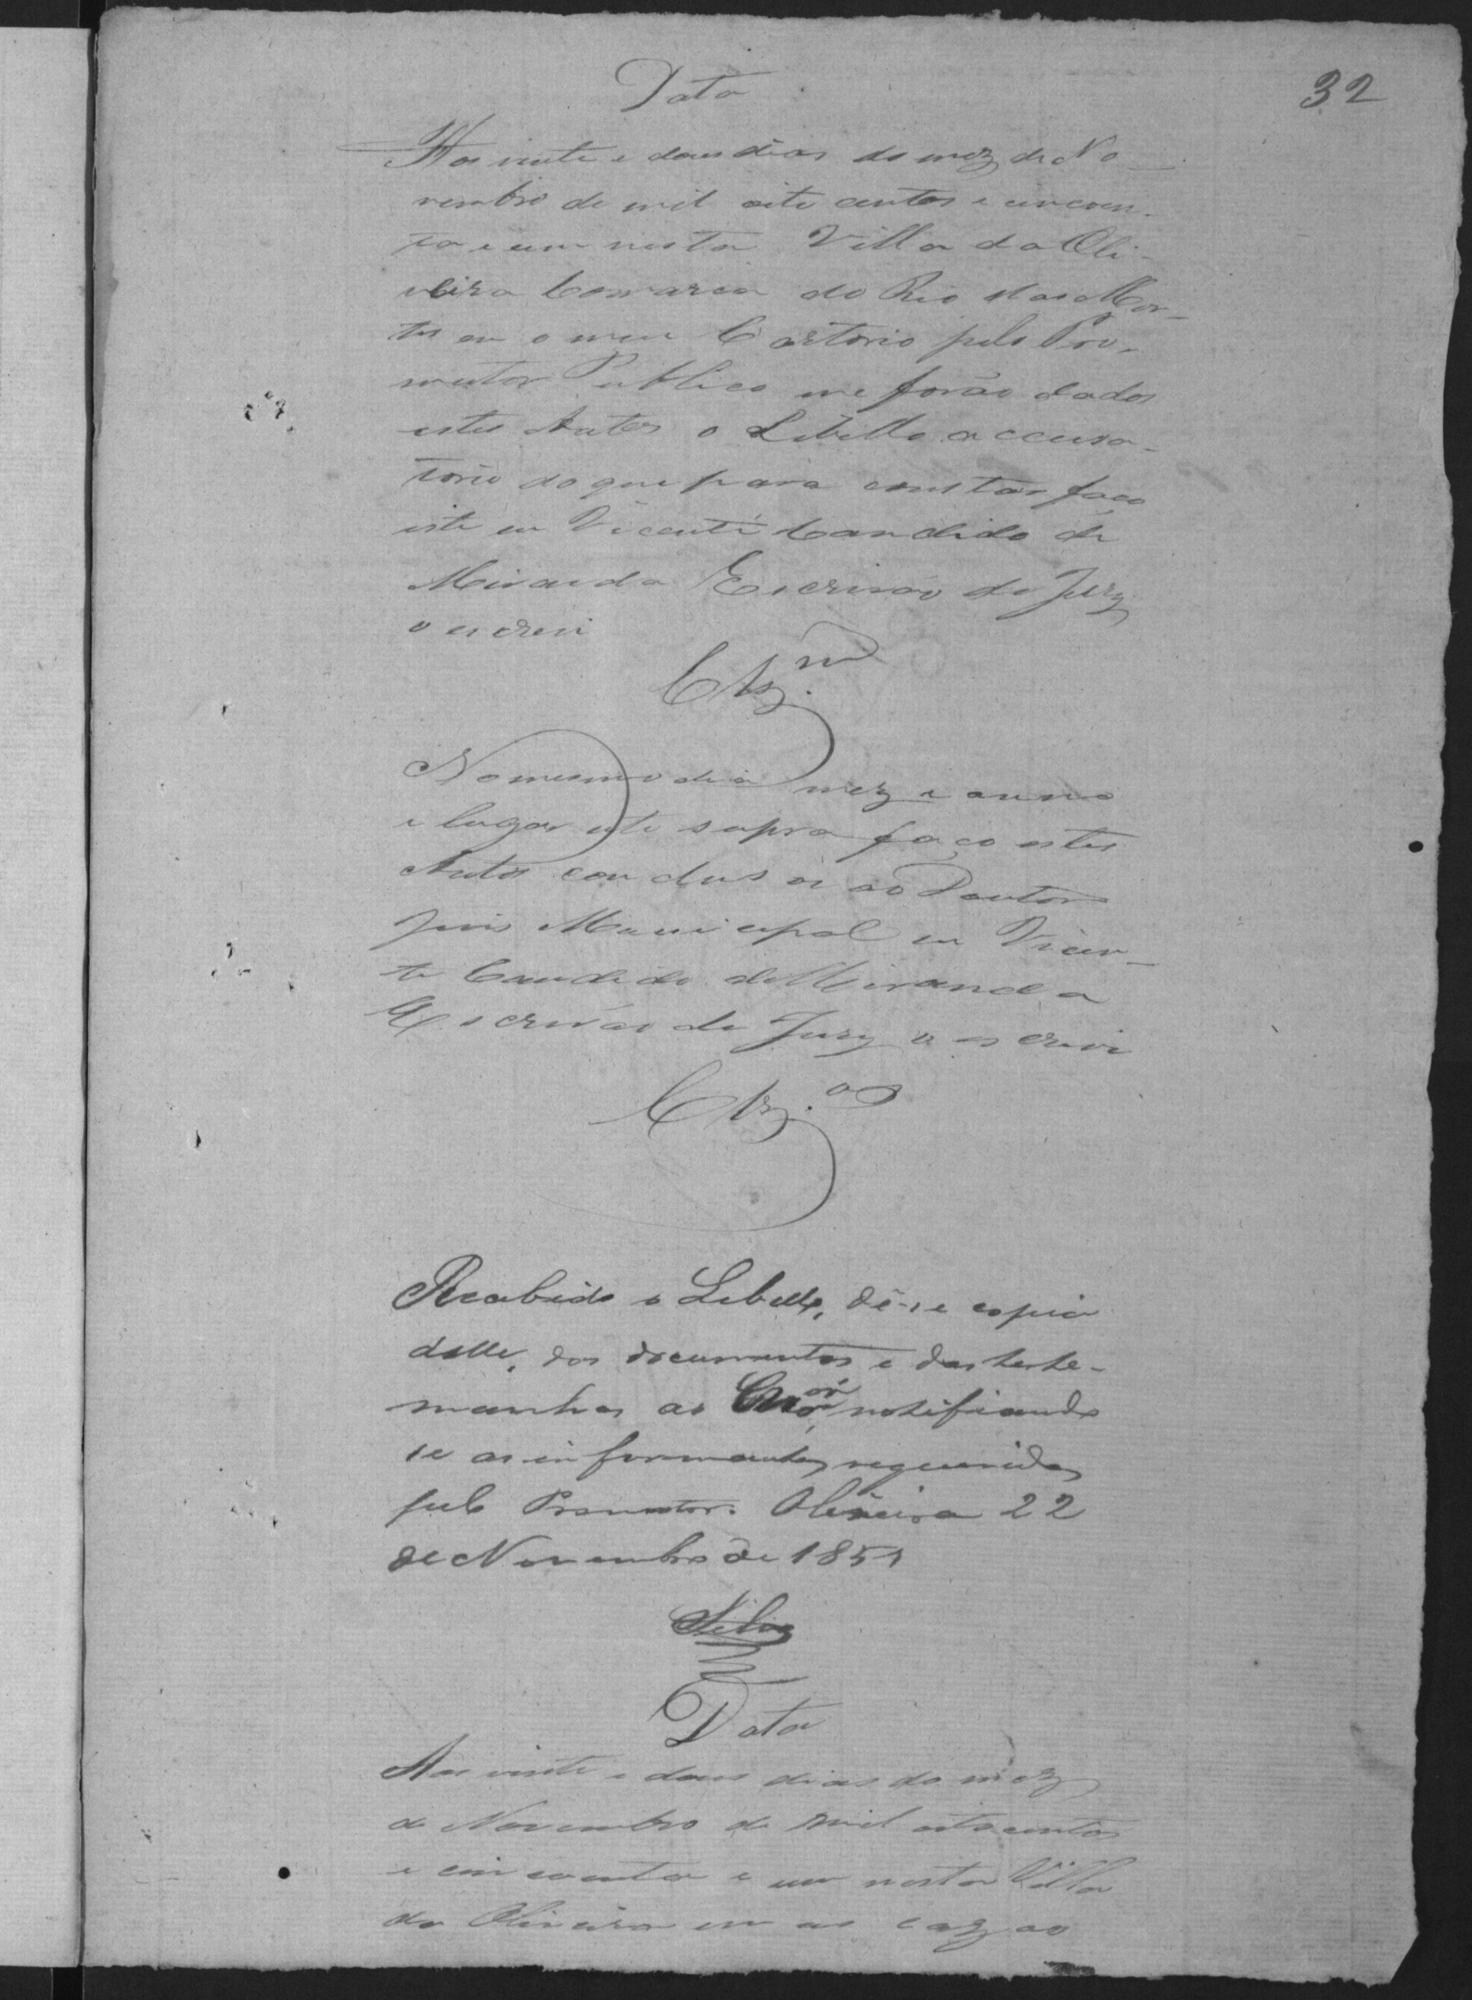 32
Data
Aos vinte e dous dias do mez de No-
vembro de mil oito centos e cincoen-
ta e um nesta Villa da Oli-
veira Comarca do Rio das Mor-
tes em o meu Cartorio pelo Pro-
mutor Publico me forão dados
estes Autos o Libello accusa-
torio do que para constar faço
este eu Vicente Candido de
Miranda Escrivão do Jury
o escrevi
Clz.
No mesmo dia mez e anno
e lugar ute supra faço estes
Autos conclusos ao Doutor
Juis Municipal eu Vicen-
te Candido de Miranda
Escrivão do Jury o escrevi
Clz.os
Recebido o Libello, dê-se copia
delle, dos documentos e das teste-
manhas ao notificando
se as informantes requeridas
pelo Promotor. Oliveira 22
de Novembro de 1851
Silva
Data
Aos vinte e dous dias do mez
de Novembro de mil oito centos
e cincoenta e um nesta Villa
da Oliveira em as cazas